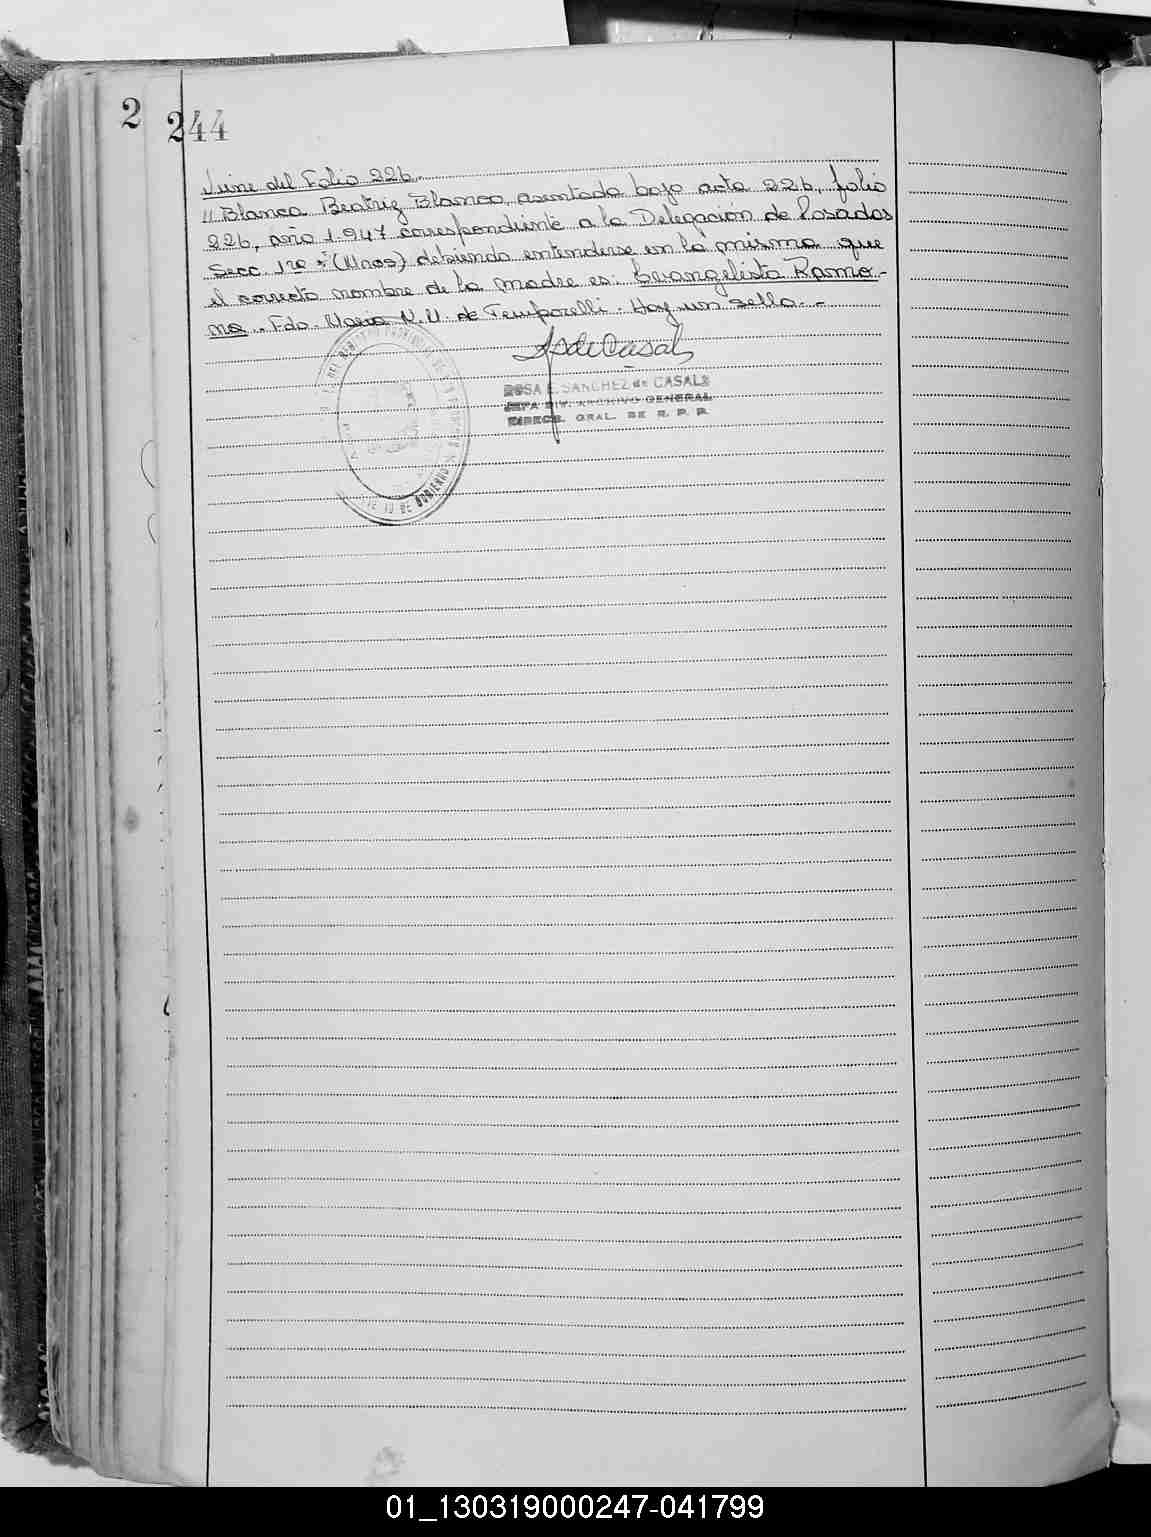 2 244
Viene del Folio 226.
// Blanca Beatriz Blanco, asentada bajo acta 226, folio
226, año 1.947 correspondiente a la Delegación de Posadas
Secc. 1ra (Mnes) debiendo entenderse en la misma que
el correcto nombre de la madre es: Evangelista Ramo-
na.. Fdo. Maria N. V. de Temporelli. Hay un sello.-
ROSA E. SANCHEZ de CASALS
JEFA DIV. ARCHIVO GENERAL
DIRECC. GRAL. DE R. P. P.
DEL REGISTRO PROVINCIAL DE
DE GOBIERNO
01_130319000247-041799